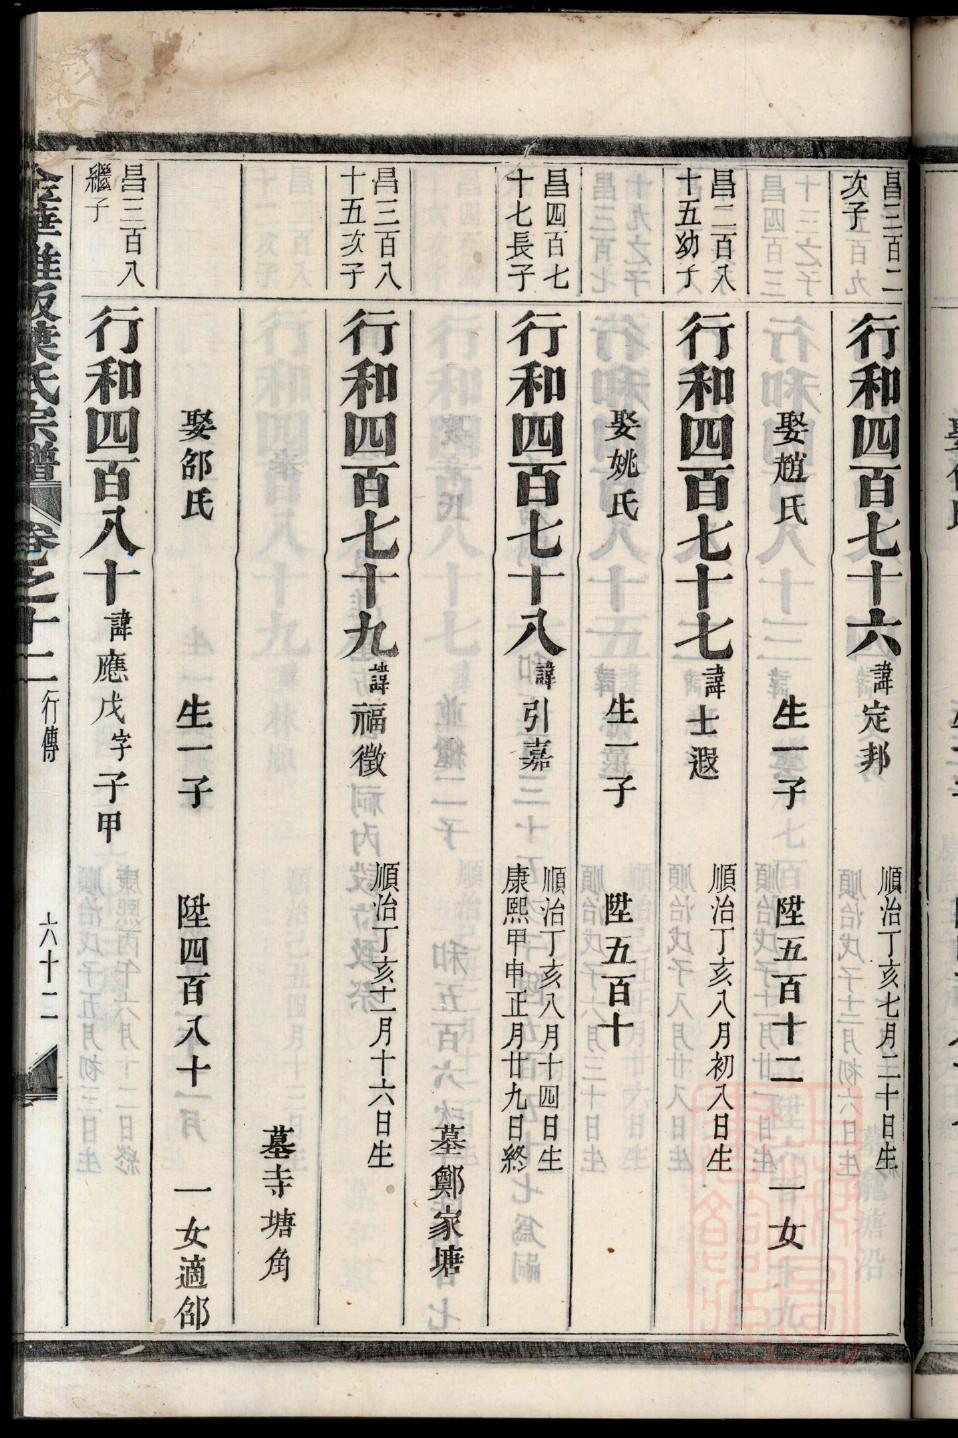 昌三百二
次子
行和四百七十六諱定邦
順治丁亥七月二十日生
娶趙氏 生一子 陞五百十二 一女
昌二百八
十五幼子
行和四百七十七諱士遐
順治丁亥八月初八日生
娶姚氏 生一子 陞五百十
昌四百七
十七長子
行和四百七十八諱引嘉
順治丁亥八月十四日生
康熙甲申正月廿九日終
墓鄭家塘
昌三百八
十五次子
行和四百七十九諱福徵
順治丁亥十一月十六日生
墓寺塘角
娶邵氏 生一子 陞四百八十一 一女適邵
昌三百八
繼子
行和四百八十諱應戊字子甲
葉氏宗譜 卷之十二 行傳 六十二